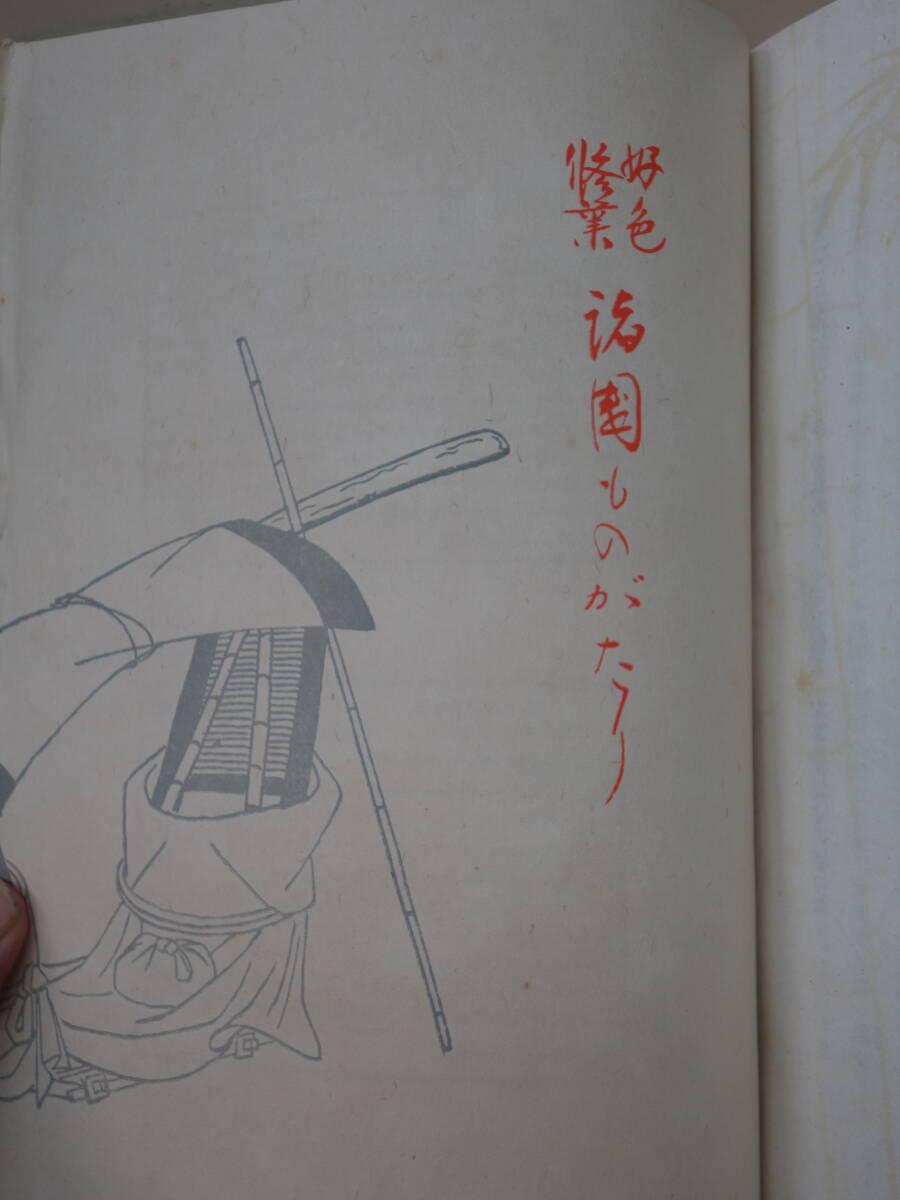 好色
修業
諸国ものがたり